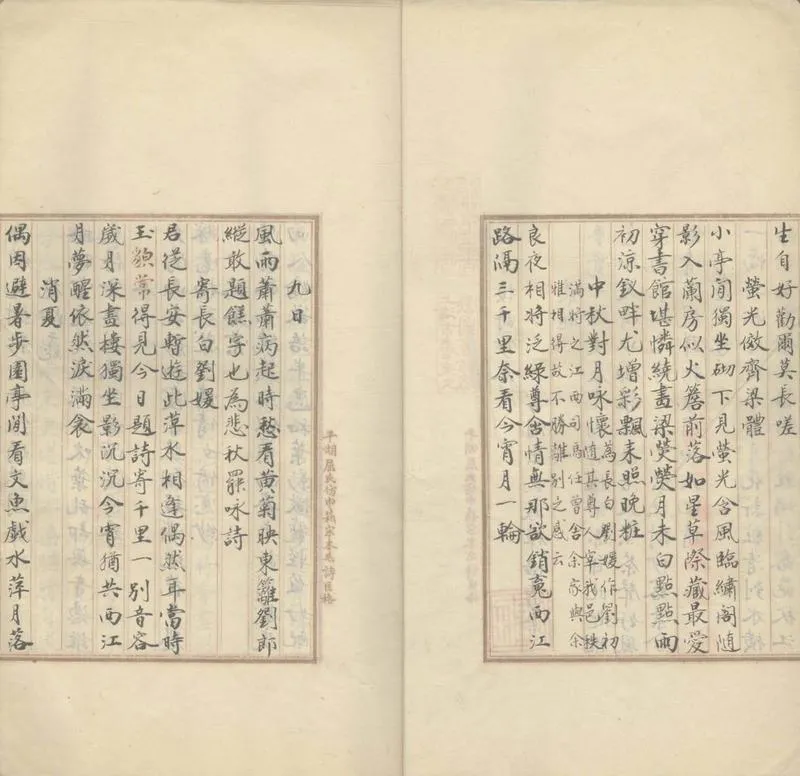 生自好勸爾莫長嗟
螢光傚齊梁體
小亭間獨坐砌下見螢光含風臨繡閣隨
影入蘭房似火簷前落如星草際藏最愛
穿書館堪憐繞畫梁熒熒月未白點點雨
初涼釵畔尤增彩飄来照晚粧
中秋對月咏懷為長白劉媛作劉初
隨其尊人宰我邑秩
滿將之江西司馬任曾舍余家與余
雅相得故不勝離別之感云
良夜相將泛綠尊含情無那欲銷寃西江
路隔三千里奈看今宵月一輪
平湖屈氏仿申藕字本為詩臣格
九日
風雨蕭蕭病起時愁看黃菊映東籬劉郎
縱敢題餻字也為悲秋罷咏詩
寄長白劉媛
君從長安暫遊此萍水相逢偶然耳當時
玉貌常得見今日題詩寄千里一別音容
歲月深畫樓獨坐影沉沉今宵猶共西江
月夢醒依然淚滿衾
消夏
偶因避暑步園亭閒看文魚戲水萍月落